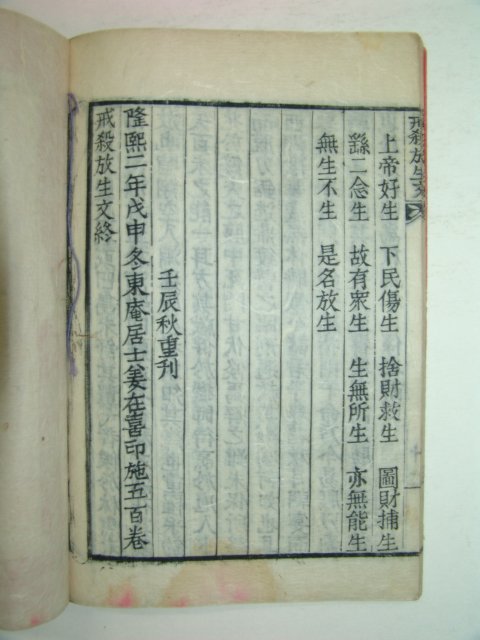 上帝好生 下民傷生 捨財救生 圖財捕生
繇二念生 故有衆生 生無所生 亦無能生
無生不生 是名放生
壬辰秋重刊
隆熙二年戊申冬東庵居士姜在喜印施五百卷
戒殺放生文終
戒殺放生文